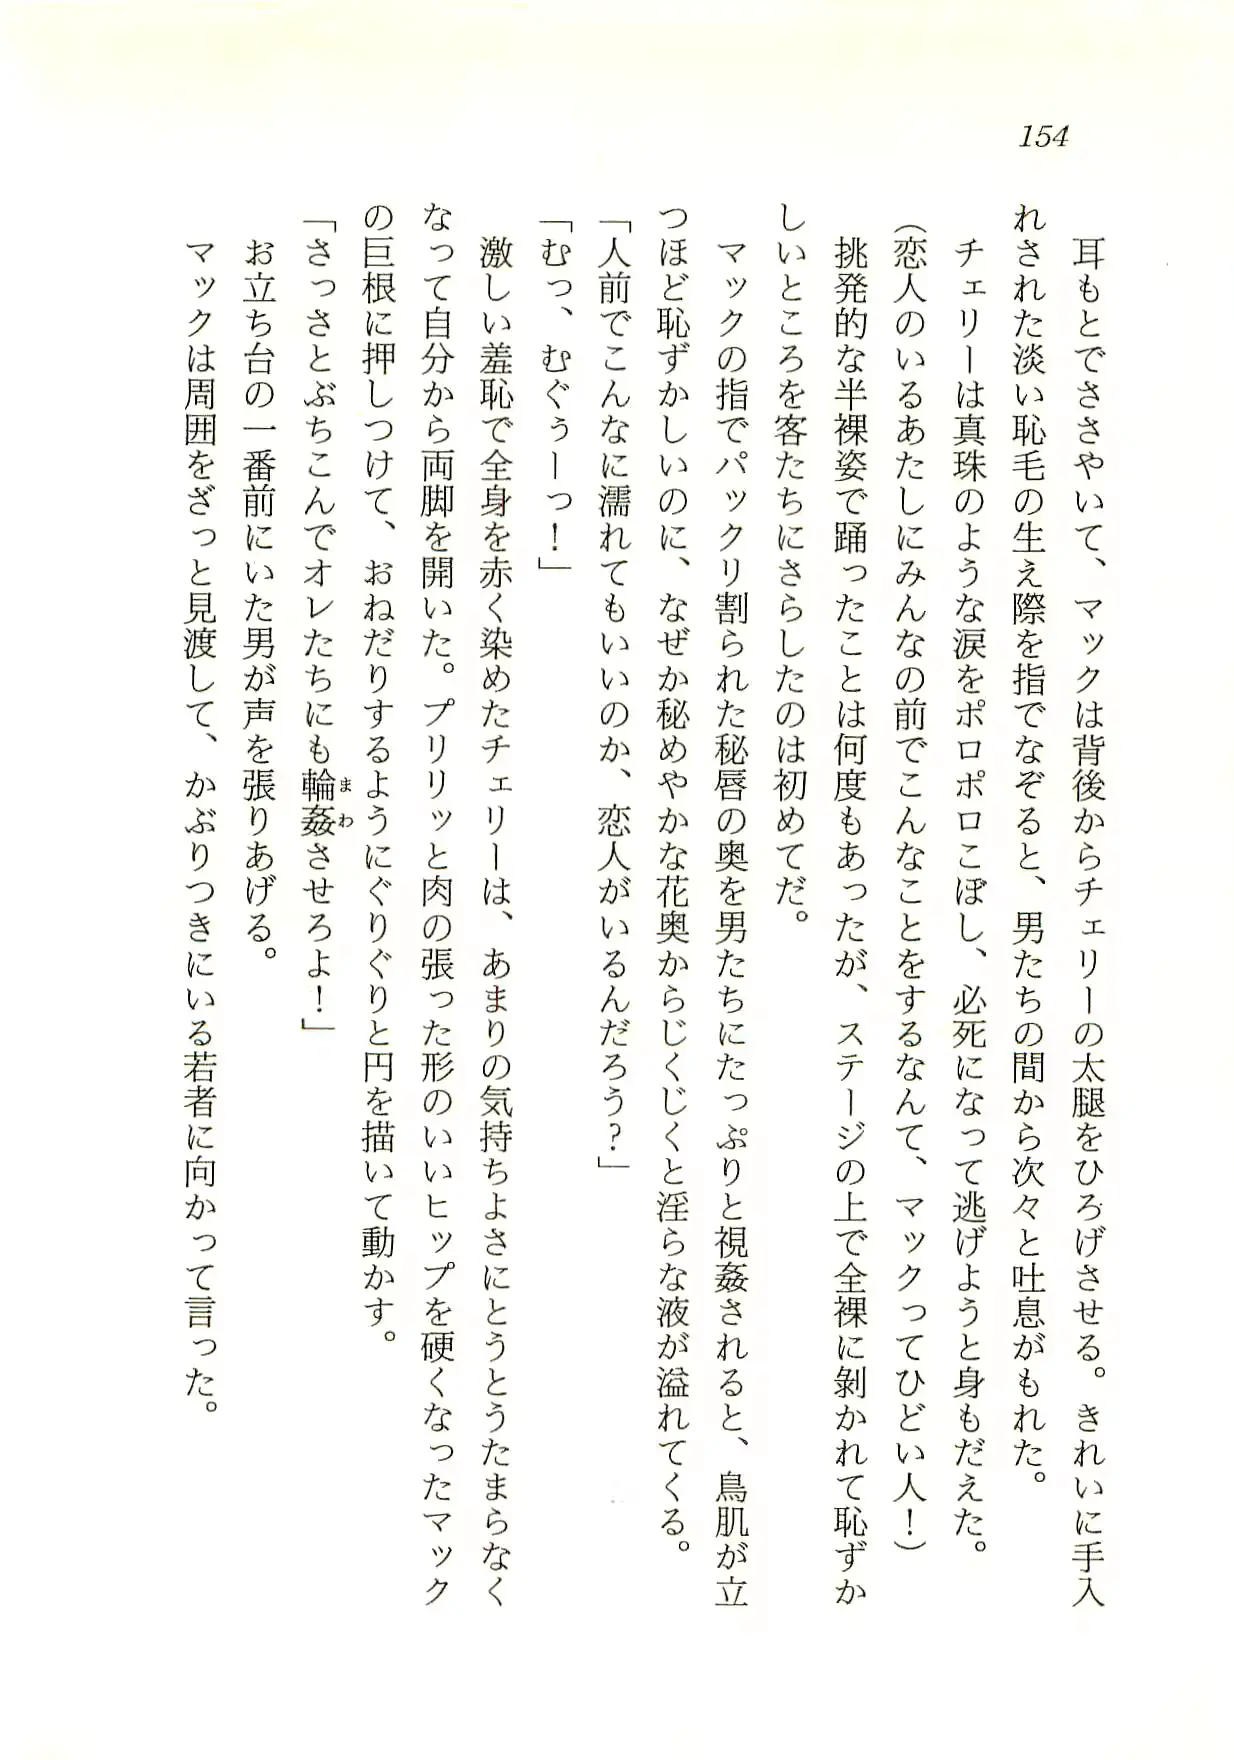 154
耳もとでささやいて、マックは背後からチェリーの太腿をひろげさせる。きれいに手入
れされた淡い恥毛の生え際を指でなぞると、男たちの間から次々と吐息がもれた。
チェリーは真珠のような涙をポロポロこぼし、必死になって逃げようと身もだえた。
（恋人のいるあたしにみんなの前でこんなことをするなんて、マックってひどい人！）
挑発的な半裸姿で踊ったことは何度もあったが、ステージの上で全裸に剝かれて恥ずか
しいところを客たちにさらしたのは初めてだ。
マックの指でパックリ割られた秘唇の奥を男たちにたっぷりと視姦されると、鳥肌が立
つほど恥ずかしいのに、なぜか秘めやかな花奥からじくじくと淫らな液が溢れてくる。
「人前でこんなに濡れてもいいのか、恋人がいるんだろう？」
「むっ、むぐぅーっ！」
激しい羞恥で全身を赤く染めたチェリーは、あまりの気持ちよさにとうとうたまらなく
なって自分から両脚を開いた。プリリッと肉の張った形のいいヒップを硬くなったマック
の巨根に押しつけて、おねだりするようにぐりぐりと円を描いて動かす。
「さっさとぶちこんでオレたちにも輪姦まわさせろよ！」
お立ち台の一番前にいた男が声を張りあげる。
マックは周囲をざっと見渡して、かぶりつきにいる若者に向かって言った。